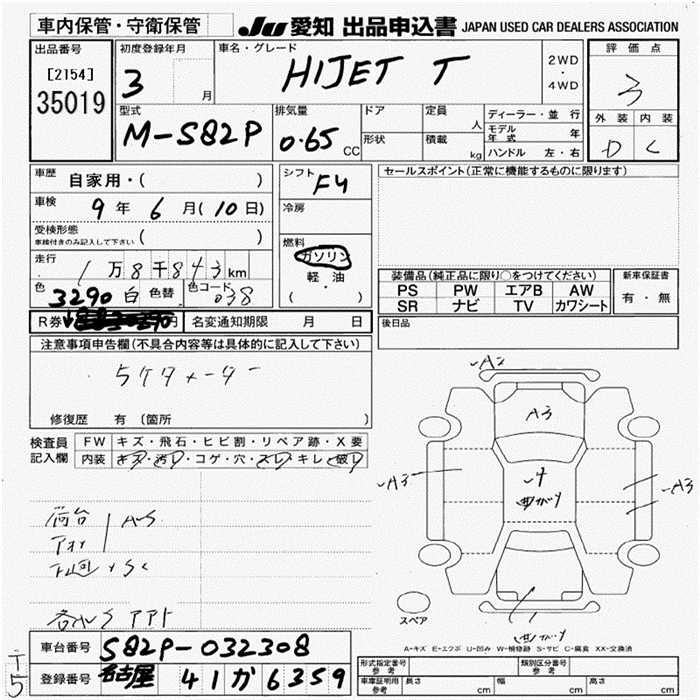 車内保管・守衛保管
JU 愛知 出品申込書 JAPAN USED CAR DEALERS ASSOCIATION
出品番号
[2154]
35019
初度登録年月
3 月
車名・グレード
HIJET T
2WD
・
4WD
評価点
3
外装 内装
D C
型式
M-S82P
排気量
0.65 CC
ドア
形状
定員
人
積載
kg
ディーラー・並行
モデル年式 年
ハンドル 左・右
車歴
自家用・( )
車検
9年 6月(10日)
受検形態
車検付きのみ記入して下さい ( )
走行
1万8千843km
色
3290 白 色替 色コード 038
R券 円 名変通知期限 月 日
シフト
F4
冷房
燃料
ガソリン
軽・油
( )
セールスポイント(正常に機能するものに限ります)
装備品(純正品に限り○をつけてください)
PS PW エアB AW
SR ナビ TV カワシート
新車保証書
有・無
後日品
注意事項申告欄(不具合内容等は具体的に記入して下さい)
5ケタメーター
修復歴 有 (箇所 )
検査員
記入欄
FW キズ・飛石・ヒビ割・リペア跡・X要
内装 キズ・汚れ・コゲ・穴・スレ・キレ・破レ
荷台
AUS
下回
A2
A3
A3
A3
スペア
A-キズ E-エクボ U-凹み W-補修跡 S-サビ C-腐食 XX-交換済
車台番号
S82P-032308
登録番号
名古屋 41 か 6359
型式指定番号
参考
類別区分番号
参考
車庫証明用
参考
長さ cm 幅 cm 高さ cm